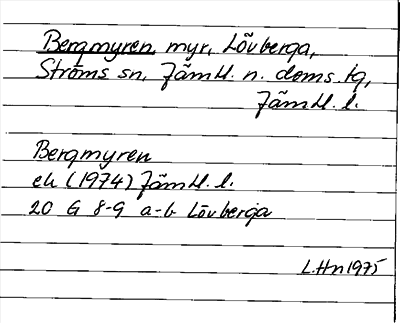 Bergmyren, myr, Lövberga,
Ströms sn, Jämtl. n. doms. tg,
Jämtl. l.
Bergmyren
ek (1974) Jämtl. l.
20 G 8-9 a-b Lövberga
L.Hn 1975